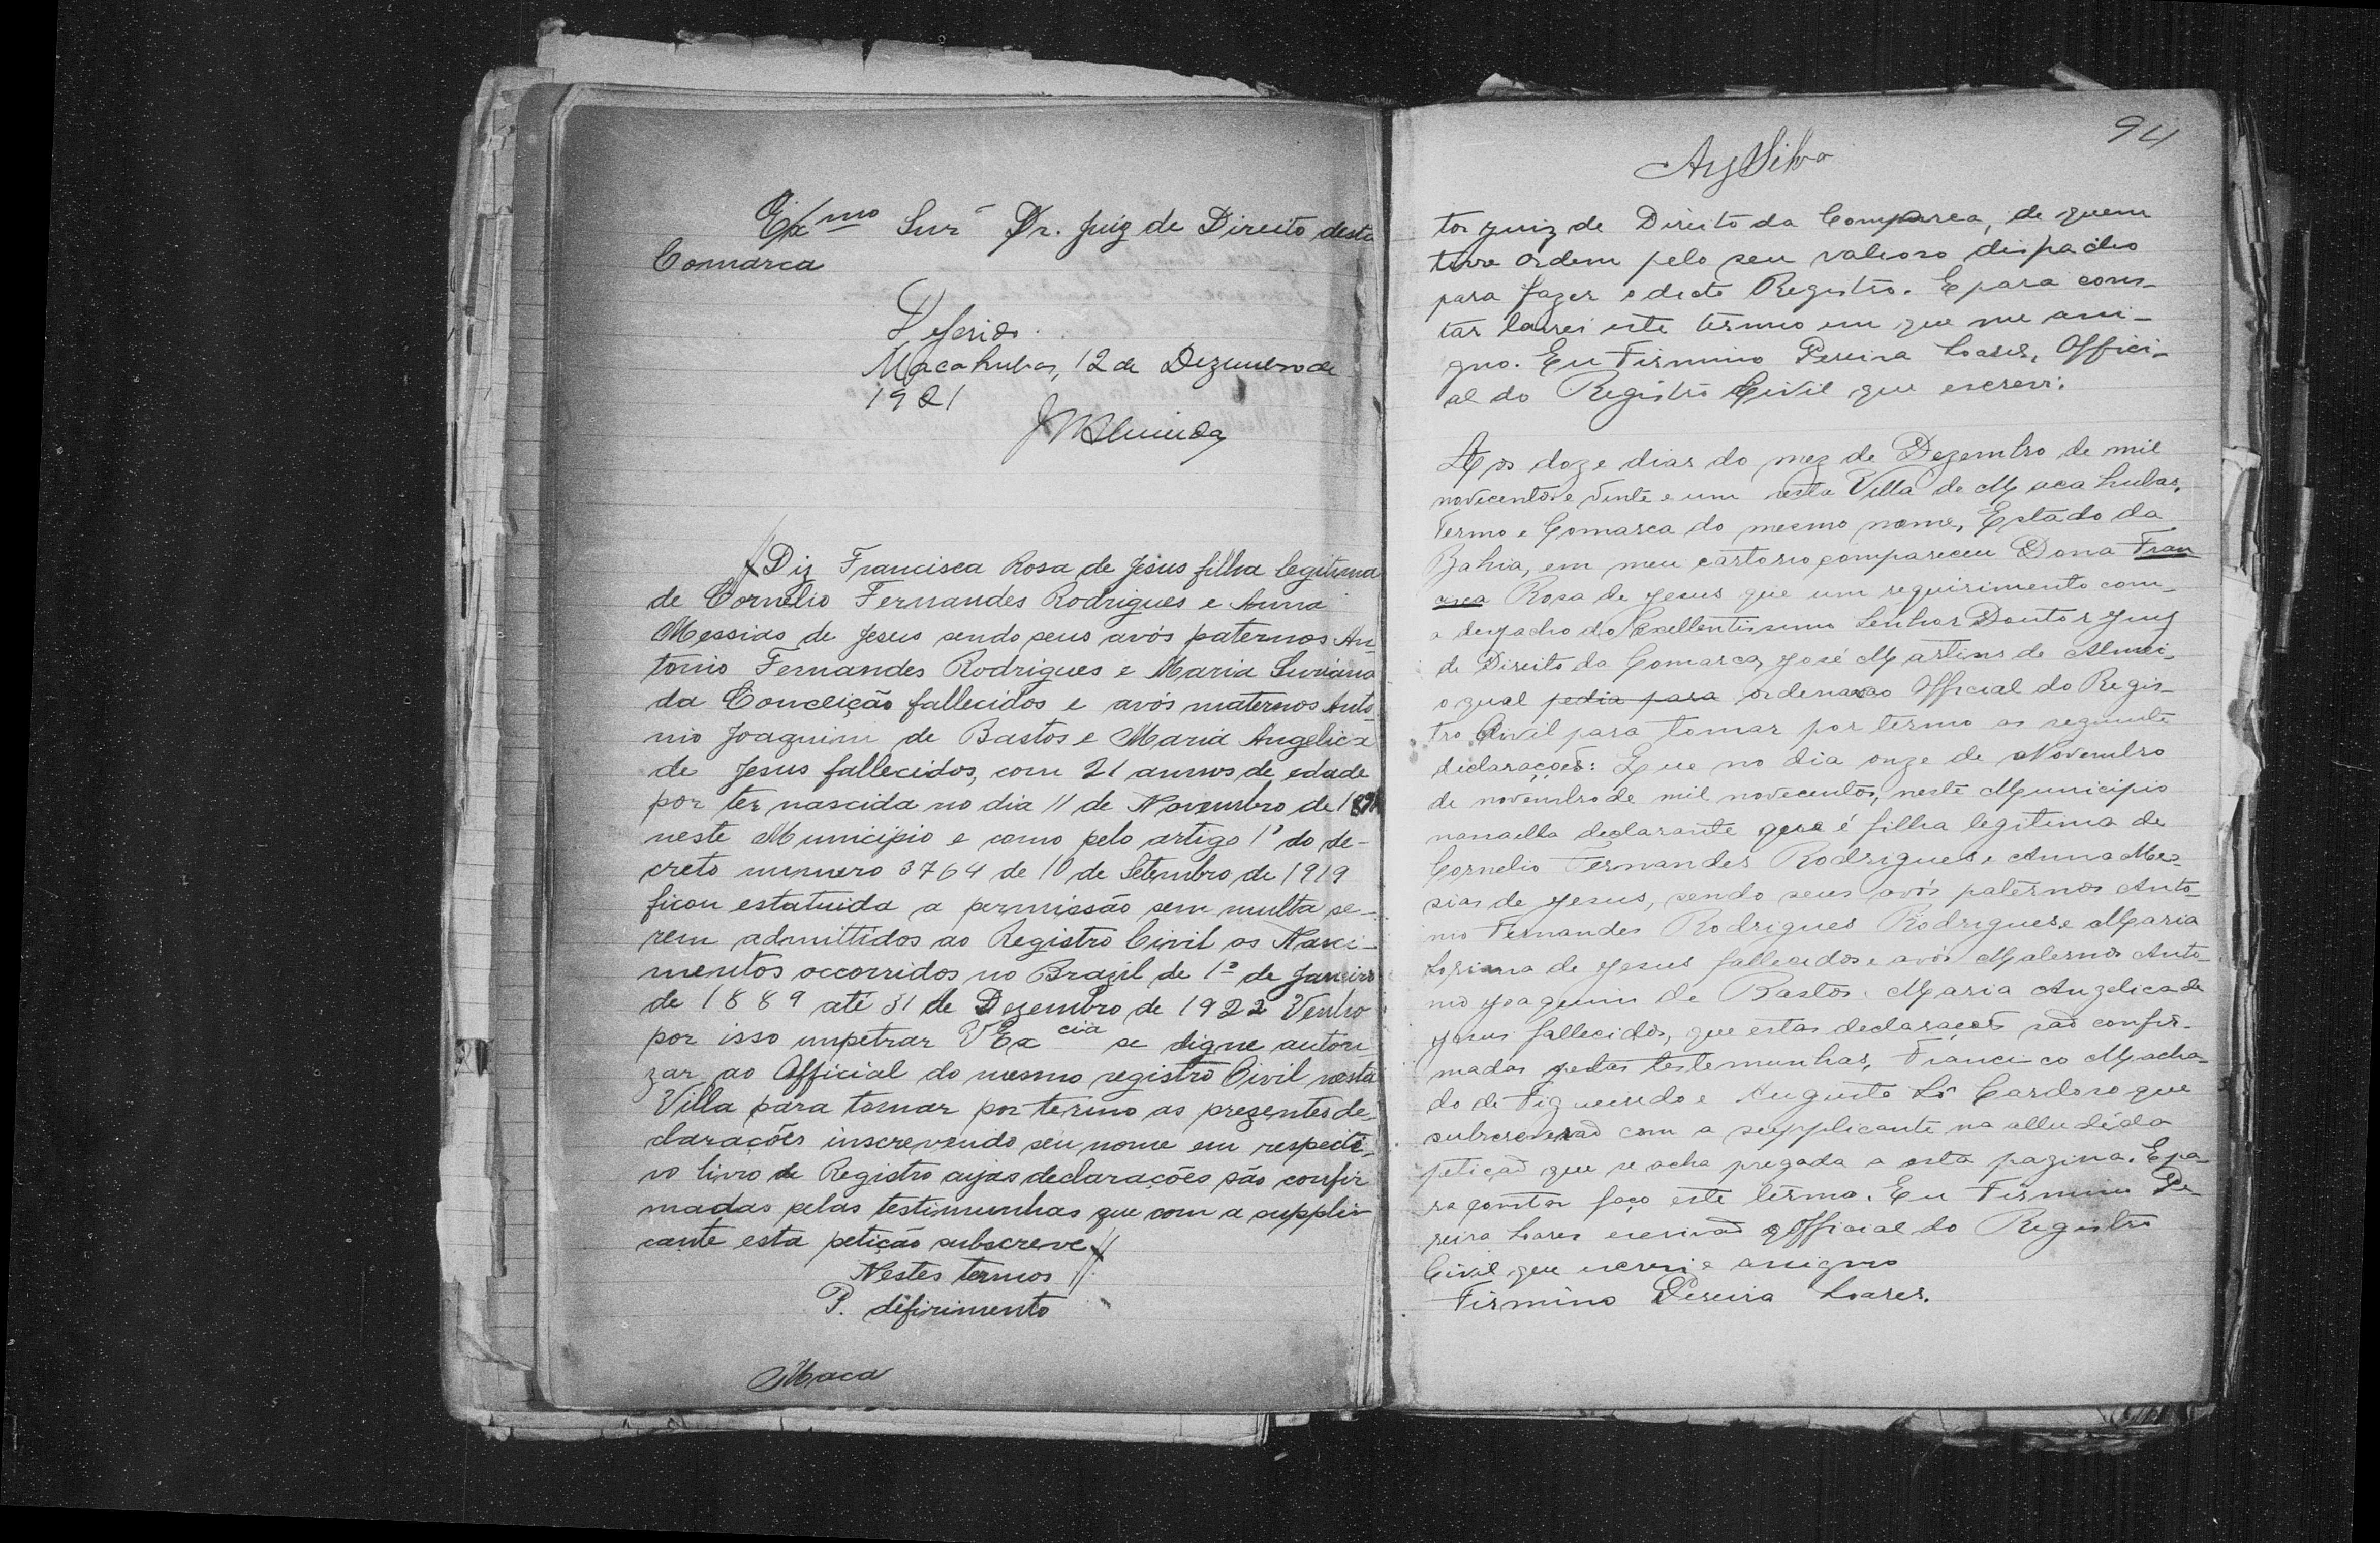 Exmo Snr Dr. Juiz de Direito desta
Comarca
Deferido.
Macahubas, 12 de Dezembro de
1921
JMAlmeida
Diz Francisca Rosa de Jesus filha legitima
de Cornelio Fernandes Rodrigues e Anna
Messias de Jesus sendo seus avós paternos An-
tonio Fernandes Rodrigues e Maria
da Conceição fallecidos e avós maternos Anto-
nio Joaquim de Bastos e Maria Angelica
de Jesus fallecidos, com 21 annos de edade
por ter nascida no dia 11 de Novembro de
neste Municipio e como pelo artigo 1º do de-
creto numero 3764 de 10 de Setembro de 1919
ficou estatuida a permissão sem multa se-
rem admittidos ao Registro Civil os Nasci-
mentos occorridos no Brazil de 1º de Janeiro
de 1889 até 31 de Dezembro de 1922 Venho
por isso impetrar VExcia se digne autori-
zar ao Official do mesmo registro Civil nesta
Villa para tomar por termo as prezentes de-
clarações inscrevendo seu nome em respecti-
vo livro de Registro cujas declarações são confir
madas pelas testimunhas que com a suppli-
cante esta petição subscreve
Nestes termos
P. difirimento
Maca
94
ArySilva
tor Juiz de Direito da Comparca, de quem
tive ordem pelo seu valioso dispacho
para fazer o dicto Registro. E para cons-
tar lavrei este termo em que me assi-
gno. Eu Firmino Pereira Soares, Offici-
al do Registro Civil que escrevi.
Aos doze dias do mez de Dezembro de mil
novecentos e vinte e um nesta Villa de Macahubas,
Termo e Comarca do mesmo nome, Estado da
Bahia, em meu cartorio compareceu Dona Fran
cisca Rosa de Jesus que um requirimento com
o despacho do Excellentissimo Senhor Doutor Juiz
de Direito da Comarca, José Martins de Almei-
o qual pedia para ordenava ao Official do Regis-
tro Civil para tomar por termo as seguinte
declarações: Que no dia onze de Novembro
de novembro de mil novecentos, neste Municipio
nasceu ella declarante que é filha legitima de
Cornelio Fernandes Rodrigues e Anna Mes-
sias de Jesus, sendo seus avós paternos Anto-
nio Fernandes Rodrigues Rodrigues e Maria
de Jesus fallecidos e avós Maternos Anto-
nio Joaquim de Bastos Maria Angelica de
Jesus fallecidos, que estas declarações são confir-
madas pelas testemunhas, Francisco Macha-
do de Figueiredo e Augusto Sá Cardoso que
subscreverão com a supplicante na alludida
petição que se acha pregada a esta pagina. E pa-
ra constar faço este termo. Eu Firmino Pe-
reira Soares escrivão e Official do Registro
Civil que escrevi e assigno
Firmino Pereira Soares.